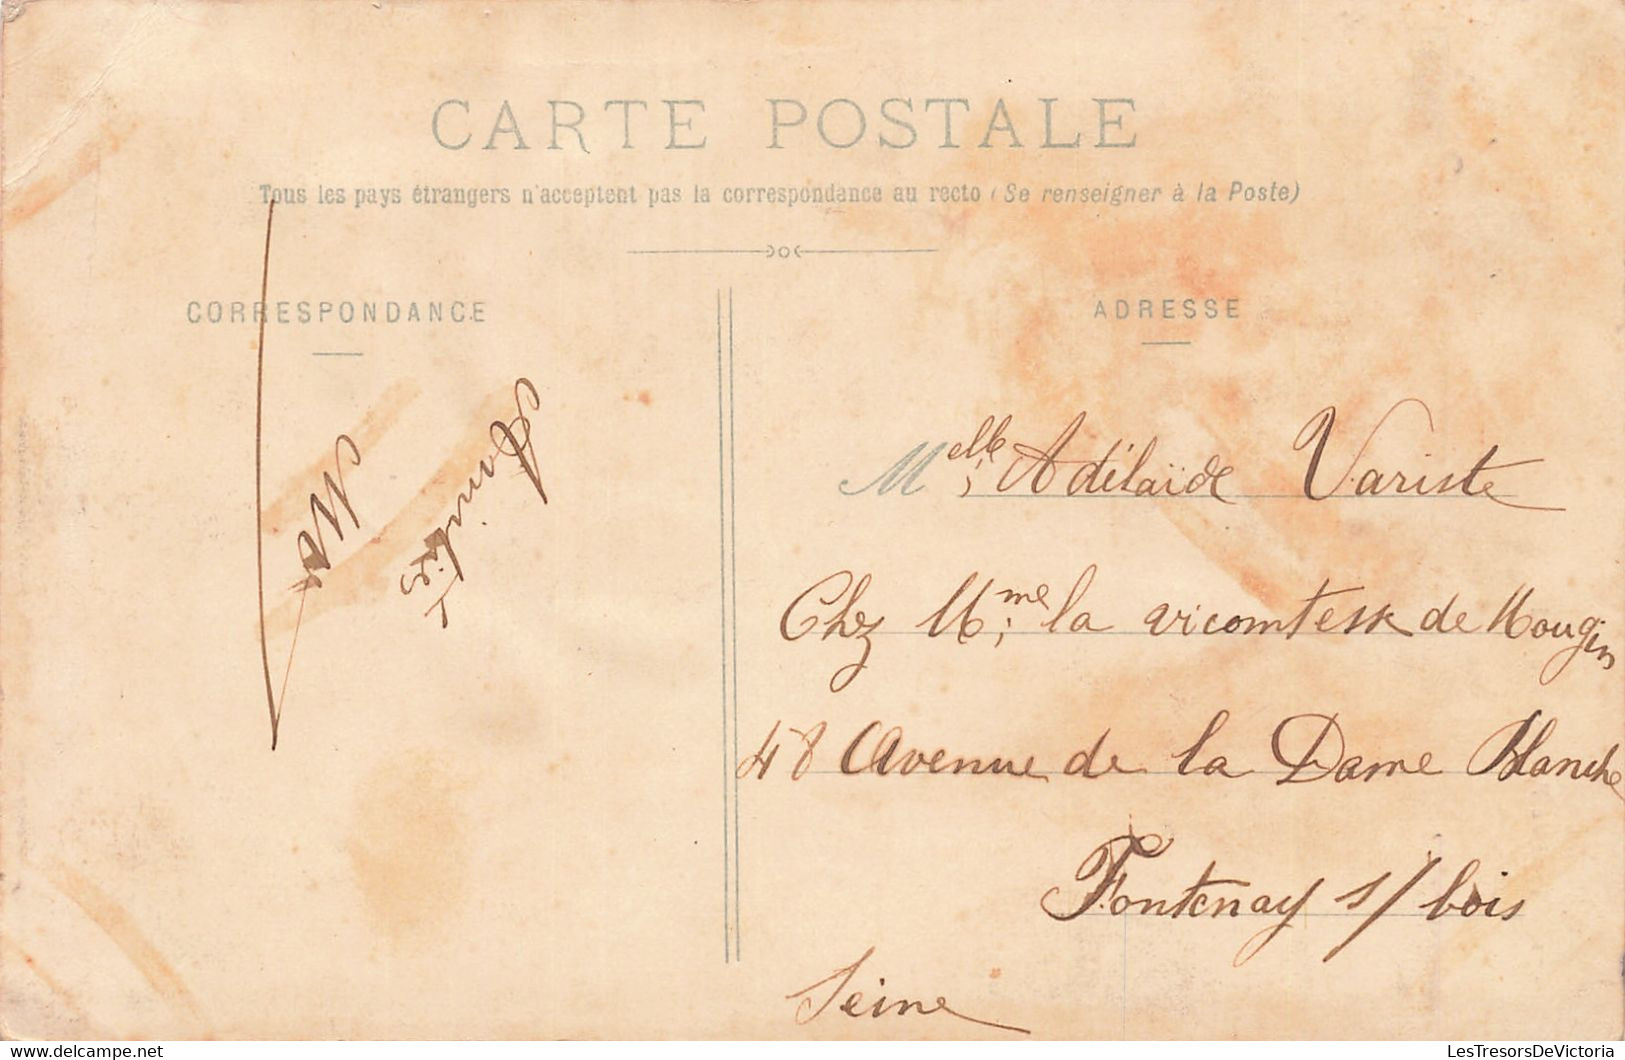 CARTE POSTALE
Tous les pays étrangers n'acceptent pas la correspondance au recto (Se renseigner à la Poste)
CORRESPONDANCE
Amitiés
ADRESSE
Melle Adélaïde Variste
Chez Mme la vicomtesse de Mougins
48 Avenue de la Dame Blanche
Fontenay s/ bois
Seine
LesTresorsDeVictoria
https://www.delcampe.net